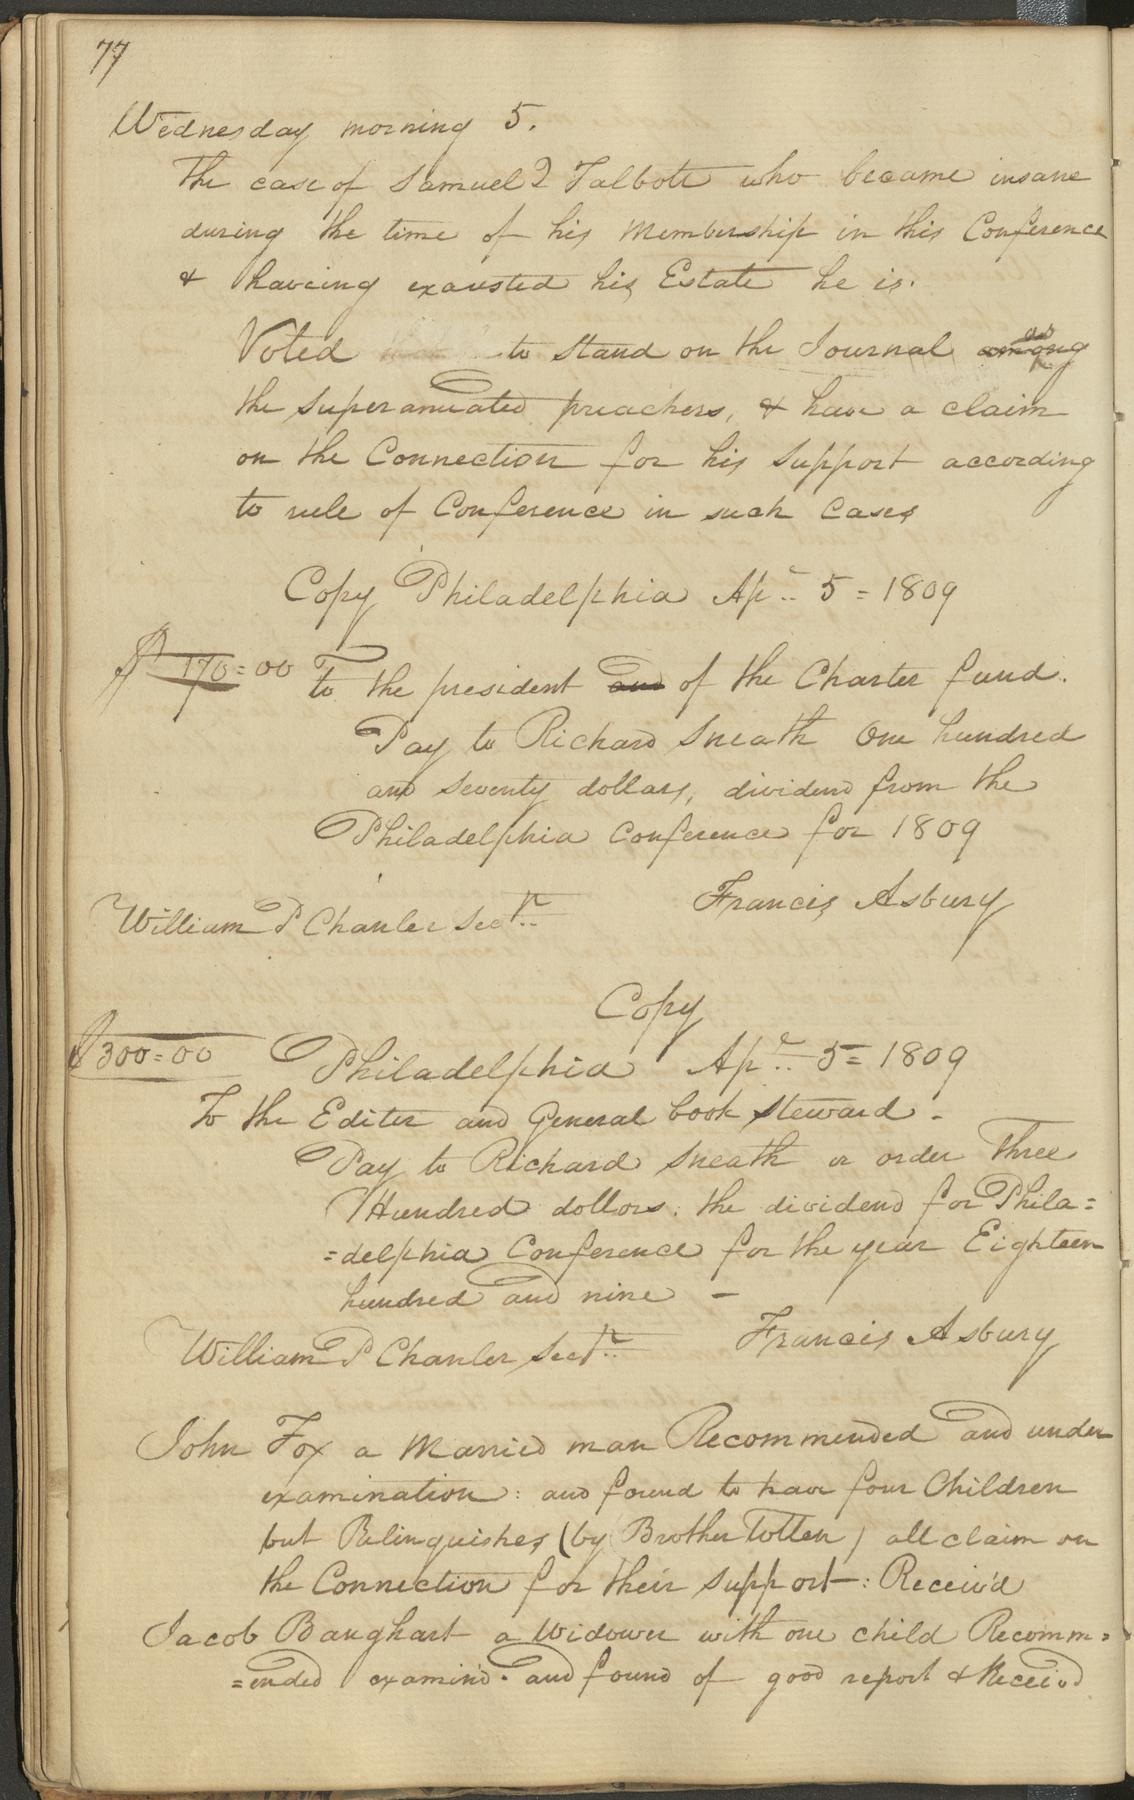 77
Wednesday morning 5.
The case of Samuel Talbott who became insane
during the time of his Membership in this Conference
& haveing exausted his Estate he is.
Voted to stand on the Journal as
the superanuated preachers, & have a claim
on the Connection for his support according
to rule of Conference in such Cases
Copy Philadelphia Apr. 5 = 1809
$ 170=00 To the president of the Charter fund.
Pay to Richard Sneath One hundred
and seventy dollars, dividend from the
Philadelphia Conference for 1809
Francis Asbury
William P Chanler Secr.
Copy
$300=00 Philadelphia Apr. 5 = 1809
To the Editer and General book Steward.
Pay to Richard Sneath or order Three
Hundred dollors: the dividend for Phila=
=delphia Conference for the year Eighteen
hundred and nine —
Francis Asbury
William P Chanler Secr.
John Fox a Married man Recommended and under
examination: and found to have four Children
but Relinquishes (by Brother Totten) all claim on
the Connection for their support: Receiv'd
Jacob Banghart a Widower with one child Recomm=
=ended examin'd. and found of good report & Received